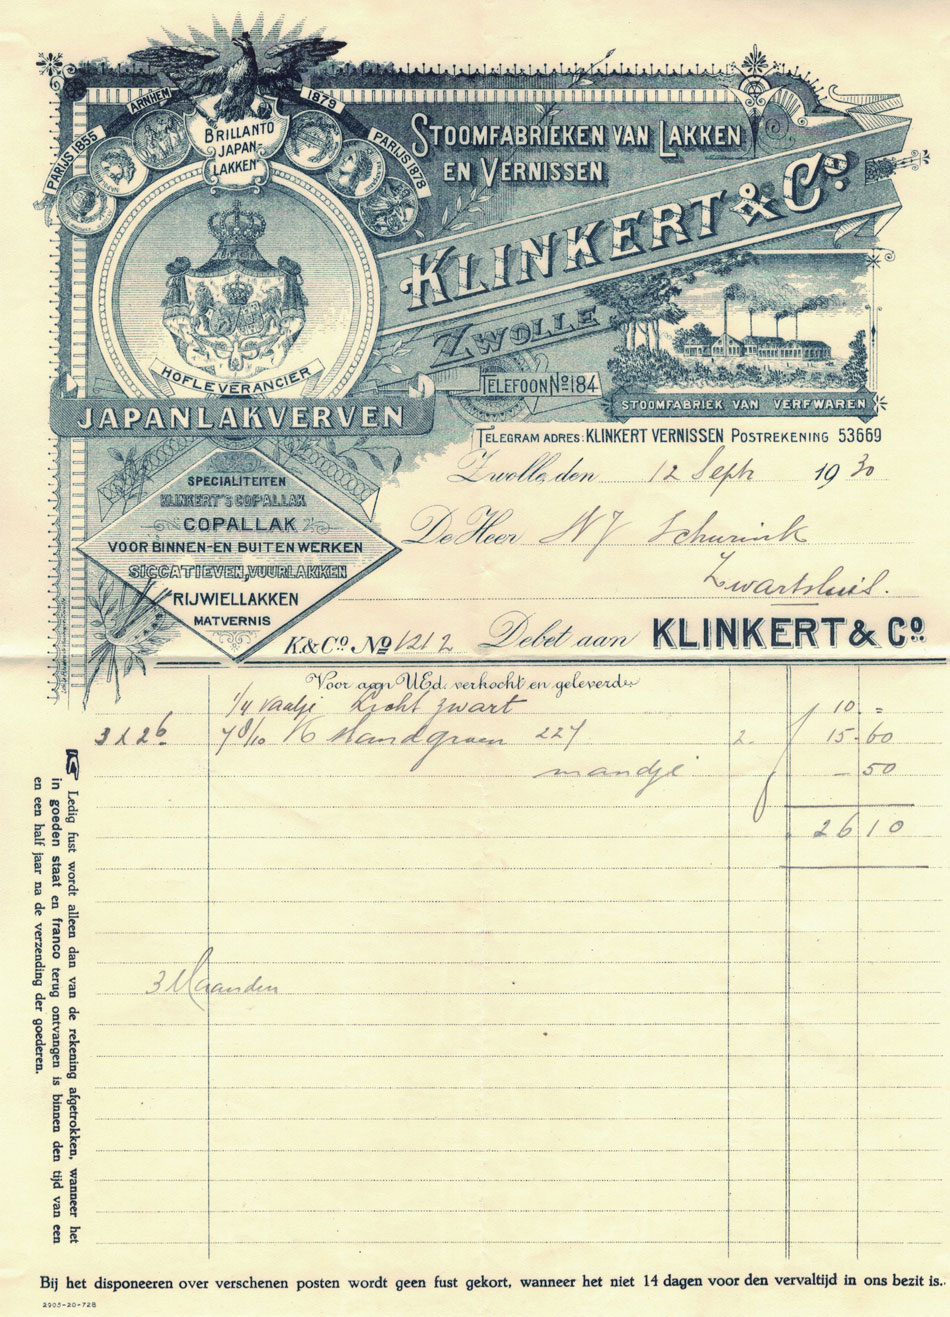 PARIJS 1855
ARNHEM
1879
PARIJS 1878
BRILLANTO
JAPAN-
LAKKEN
STOOMFABRIEKEN VAN LAKKEN
EN VERNISSEN
KLINKERT & Co.
ZWOLLE
TELEFOON No 184
HOFLEVERANCIER
JAPANLAKVERVEN
STOOMFABRIEK VAN VERFWAREN
TELEGRAM ADRES: KLINKERT VERNISSEN POSTREKENING 53669
Zwolle, den 12 Sept 1930
De Heer N J Schurink
Zwartsluis.
SPECIALITEITEN
KLINKERT'S COPALLAK
COPALLAK
VOOR BINNEN- EN BUITENWERKEN
SICCATIEVEN, VUURLAKKEN
RIJWIELLAKKEN
MATVERNIS
K. & Co. No 1212 Debet aan KLINKERT & Co.
Voor aan UEd. verkocht en geleverd:
1/4 vaatje licht zwart 10.=
227 2. 15.60
mandje -50
26 10
3 Maanden
Ledig fust wordt alleen dan van de rekening afgetrokken, wanneer het
in goeden staat en franco terug ontvangen is binnen den tijd van een
en een half jaar na de verzending der goederen.
Bij het disponeeren over verschenen posten wordt geen fust gekort, wanneer het niet 14 dagen voor den vervaltijd in ons bezit is.
2905-20-728